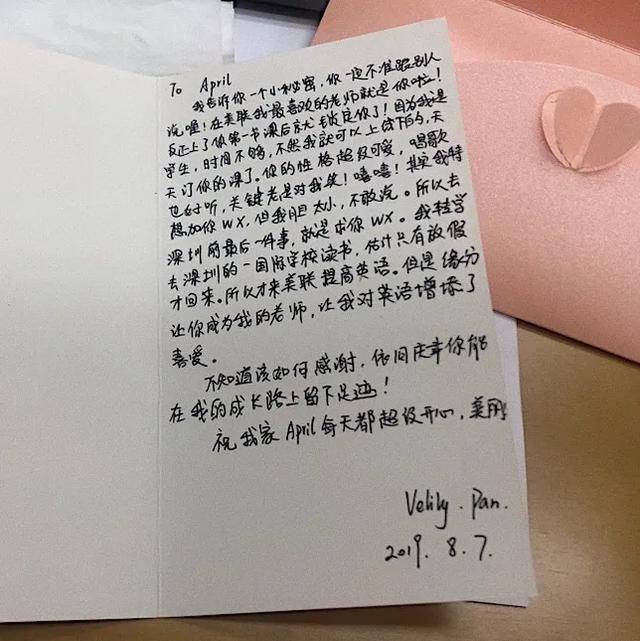 To April
我告诉你一个小秘密，你一定不准跟别人
说喔！在美联我最喜欢的老师就是你啦！
反正上了你第一节课后就锁定你了！因为我是
学生，时间不够，不然我就可以上线下的，天
天订你的课了。你的性格超级可爱，唱歌
也好听，关键老是对我笑！嘻嘻！其实我特
想加你WX，但我胆太小，不敢说。所以去
深圳前最后一件事，就是求你WX。我转学
去深圳的一国际学校读书，估计只有放假
才回来。所以才来美联提高英语。但是缘分
让你成为我的老师，让我对英语增添了
喜爱。
不知道该如何感谢，依旧庆幸你能
在我的成长路上留下足迹！
祝我家April每天都超级开心，美丽！
Velily. Pan.
2019. 8. 7.